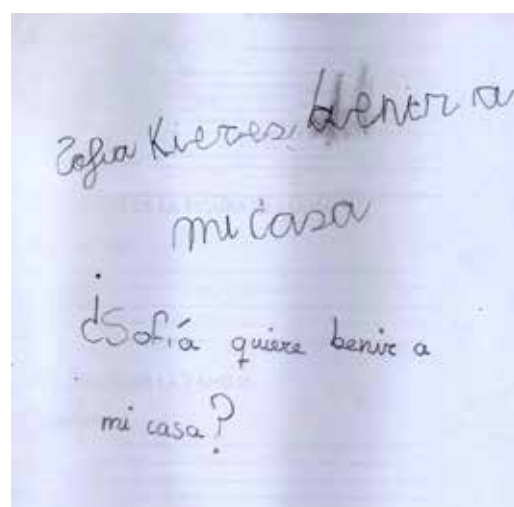 Zofia Kieres benir a
mi casa
¿Sofía quiere benir a
mi casa?